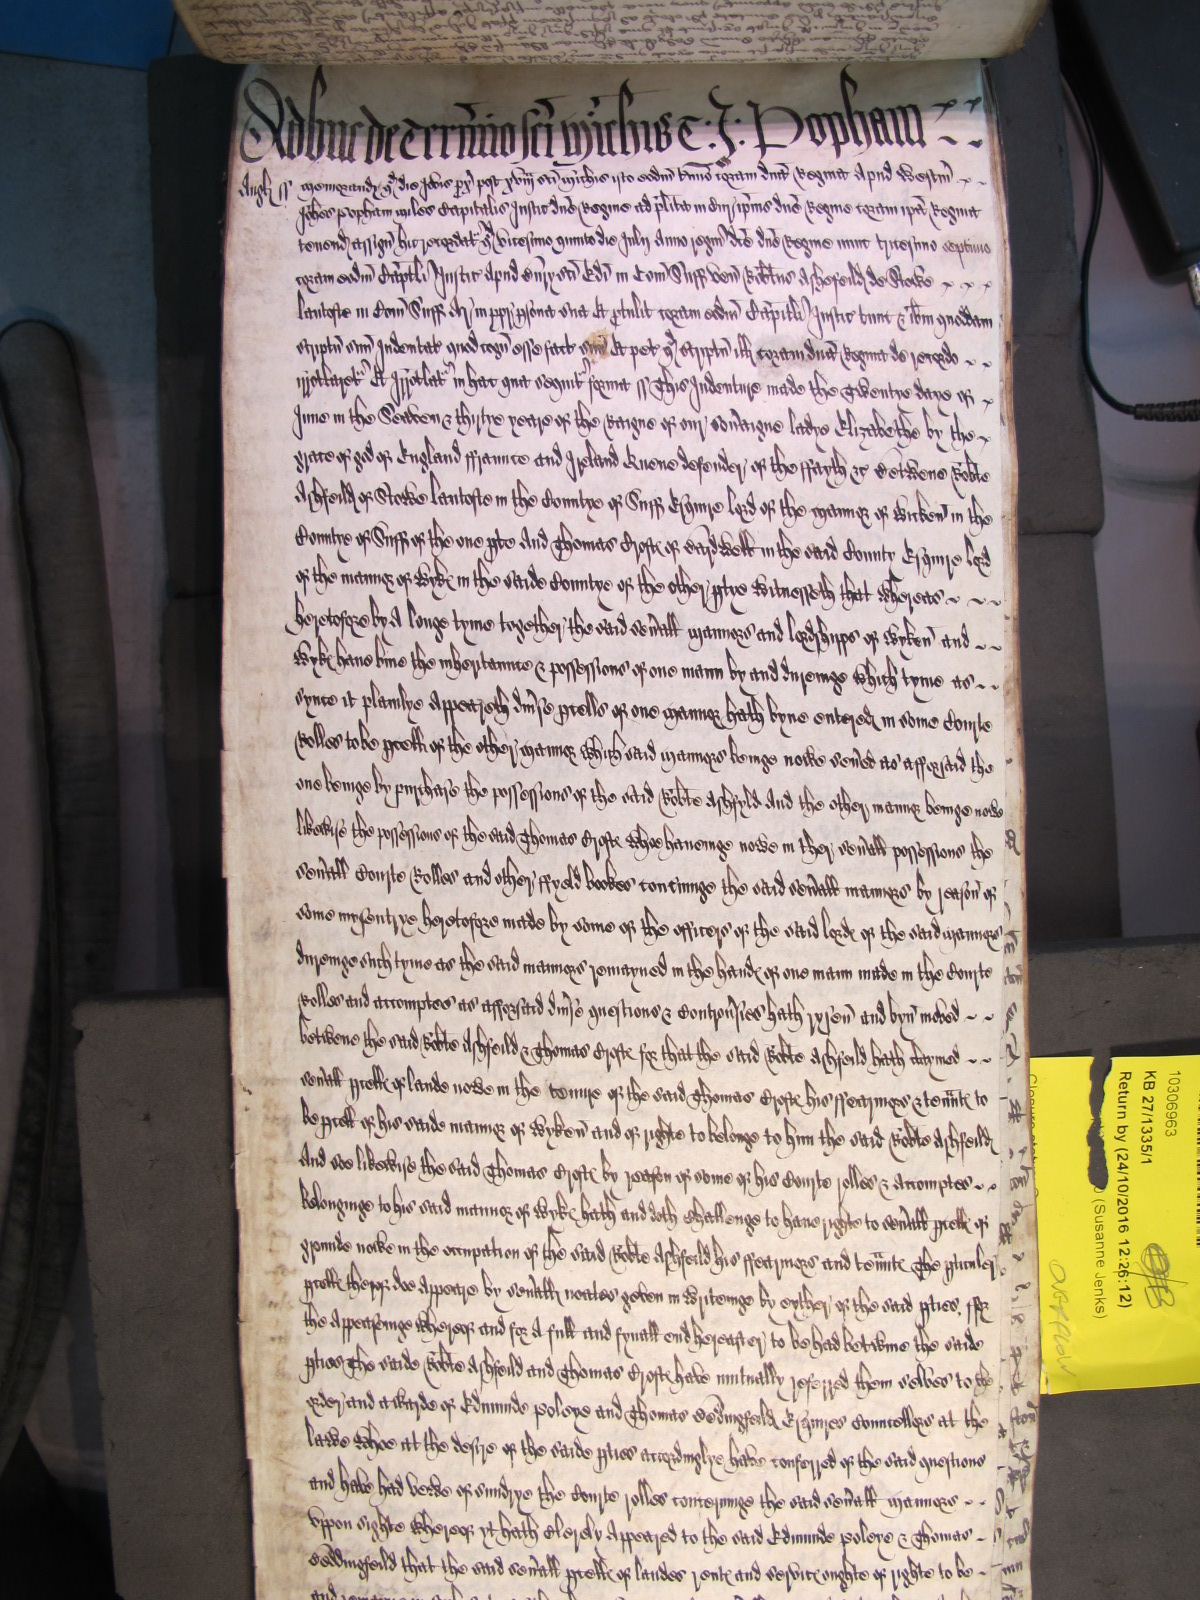 Adhuc de termino sci Michis T: J: Popham
Angl ss Memorand qd die Jovis px post xviij sci Michis isto eodm Termio coram dna Regina apud Westm
Johes Popham miles Capitalis Justic dne Regine ad plita in Cur ipius dne Regine coram ipa Regina
tenend assign hic recordat qd vicesimo quinto die Julij anno regni dce dne Regine nunc tricesimo septimo
coram eodm Capitli Justic apud Bury sci Edi in Com Suff ven Robtus Ashefeild de Stowe
lantofte in Com Suff Ar in ppr psona sua Et ptulit coram eodm Capitli Justic tunc & ibm quoddam
scriptu suu Indentat quod cogn esse fact suu Et pet qd scriptu ill coram dna Regina de recordo
irrotlaret Et Irrotlat in hac que sequit forma ss This Indenture made the Twentye daye of
June in the Seaven & thirtye yeare of the Raigne of our sovraigne ladye Elizabethe by the
grace of god of England ffraunce and Ireland Quene defender of the ffayth &c Betwene Robte
Ashfeild of Stowe lantofte in the Countye of Suff Esquire lord of the manner of Wicken in the
Countye of Suff of the one pte And Thomas Crofte of Bardwell in the said County Esquire lord
of the manner of Wyke in the saide Countye of the other ptye Witnesseth that Whereas
heretofore by A longe tyme together the said sevall manners and lordshipps of Wyken and
Wyke have bine the inheritaunce & possessions of one mann by and dureinge which tyme as
synce it plainlye Appeareth divse pcells of one manner hath byne entered in some Courte
Rolles to be pcell of the other manner Which said manners beinge nowe sevred as afforsaid the
one beinge by purchase the possessions of the said Robte Ashfyld And the other manner beinge nowe
likewise the possessions of the said Thomas Crofte Whoe haveinge nowe in ther sevall possessions the
sevall Courte Rolles and other ffyeld bookes concninge the said sevall manners by reason of
some mysentrye heretofore made by some of the officers of the said lordes of the said manners
dureinge such tyme as the said manners remayned in the handes of one mann made in the Courte
Rolles and accomptes as afforsaid divse questions & Controvsies hath rysen and byn moved
betwene the said Robte Ashfeild & Thomas Crofte for that the said Robte Ashfeild hath claymed
sevall pcells of lande nowe in the tenure of the said Thomas Crofte his ffearmers & tennte to
be pcell of his saide manner of Wyken and of righte to belonge to him the said Robte Ashfeild
And soe likewise the said Thomas Crofte by reason of some of his Courte rolles & accomptes
belonginge to his said manner of Wyke hath and doth Challenge to have righte to sevall pcells of
grounde nowe in the occupation of the said Robte Ashfeild his ffearmers and tennte The pticuler
pcells therof doe Appeare by sevall noates geven in Writeinge by eyther of the said pties. ffor
the Appeasinge Whereof and for A full and fynall end hereafter to be had betwine the saide
pties The saide Robte Ashfeild and Thomas Crofte have mutually referred them selves to the
order and awarde of Edmunde Poleye and Thomas Bedingfeild Esquires Councellers at the
lawe Whoe at the desire of the saide pties accordinglye have conferred of the said questions
and have had vewe of sundrye the Courte rolles concerninge the said sevall manners
Uppon sighte Whereof yt hath Clerely Appeared to the said Edmunde Poleye & Thomas
Beddingfeild that the said sevall pcells of landes rente and service oughte of righte to be
10306963
KB 27/1335/1
Return by (24/10/2016 12:26:12)
(Susanne Jenks)